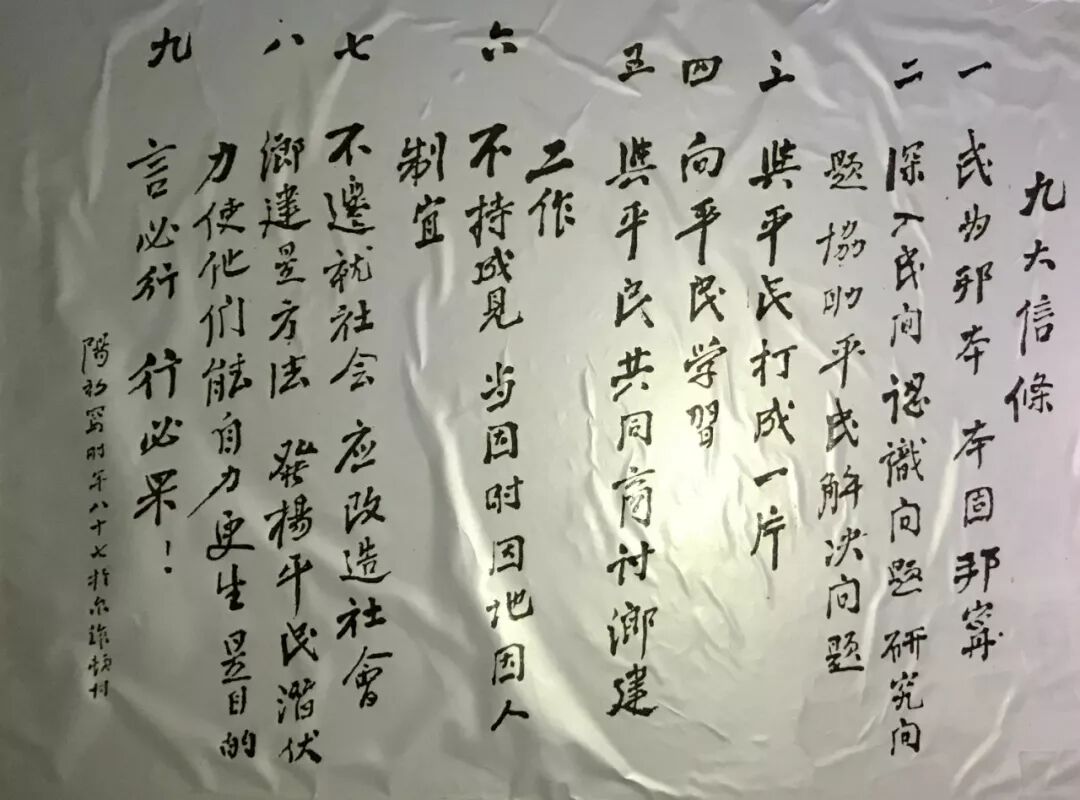 九大信條
一 民为邦本 本固邦寧
二 深入民间 認識问题 研究问
题 協助平民解决问题
三 與平民打成一片
四 向平民学習
五 與平民共同商讨鄉建
工作
六 不持成見 当因时因地因人
制宜
七 不遷就社会 应改造社會
八 鄉建是方法 發揚平民潜伏
力使他们能自力更生是目的
九 言必行 行必果！
陽初寫时年八十七於